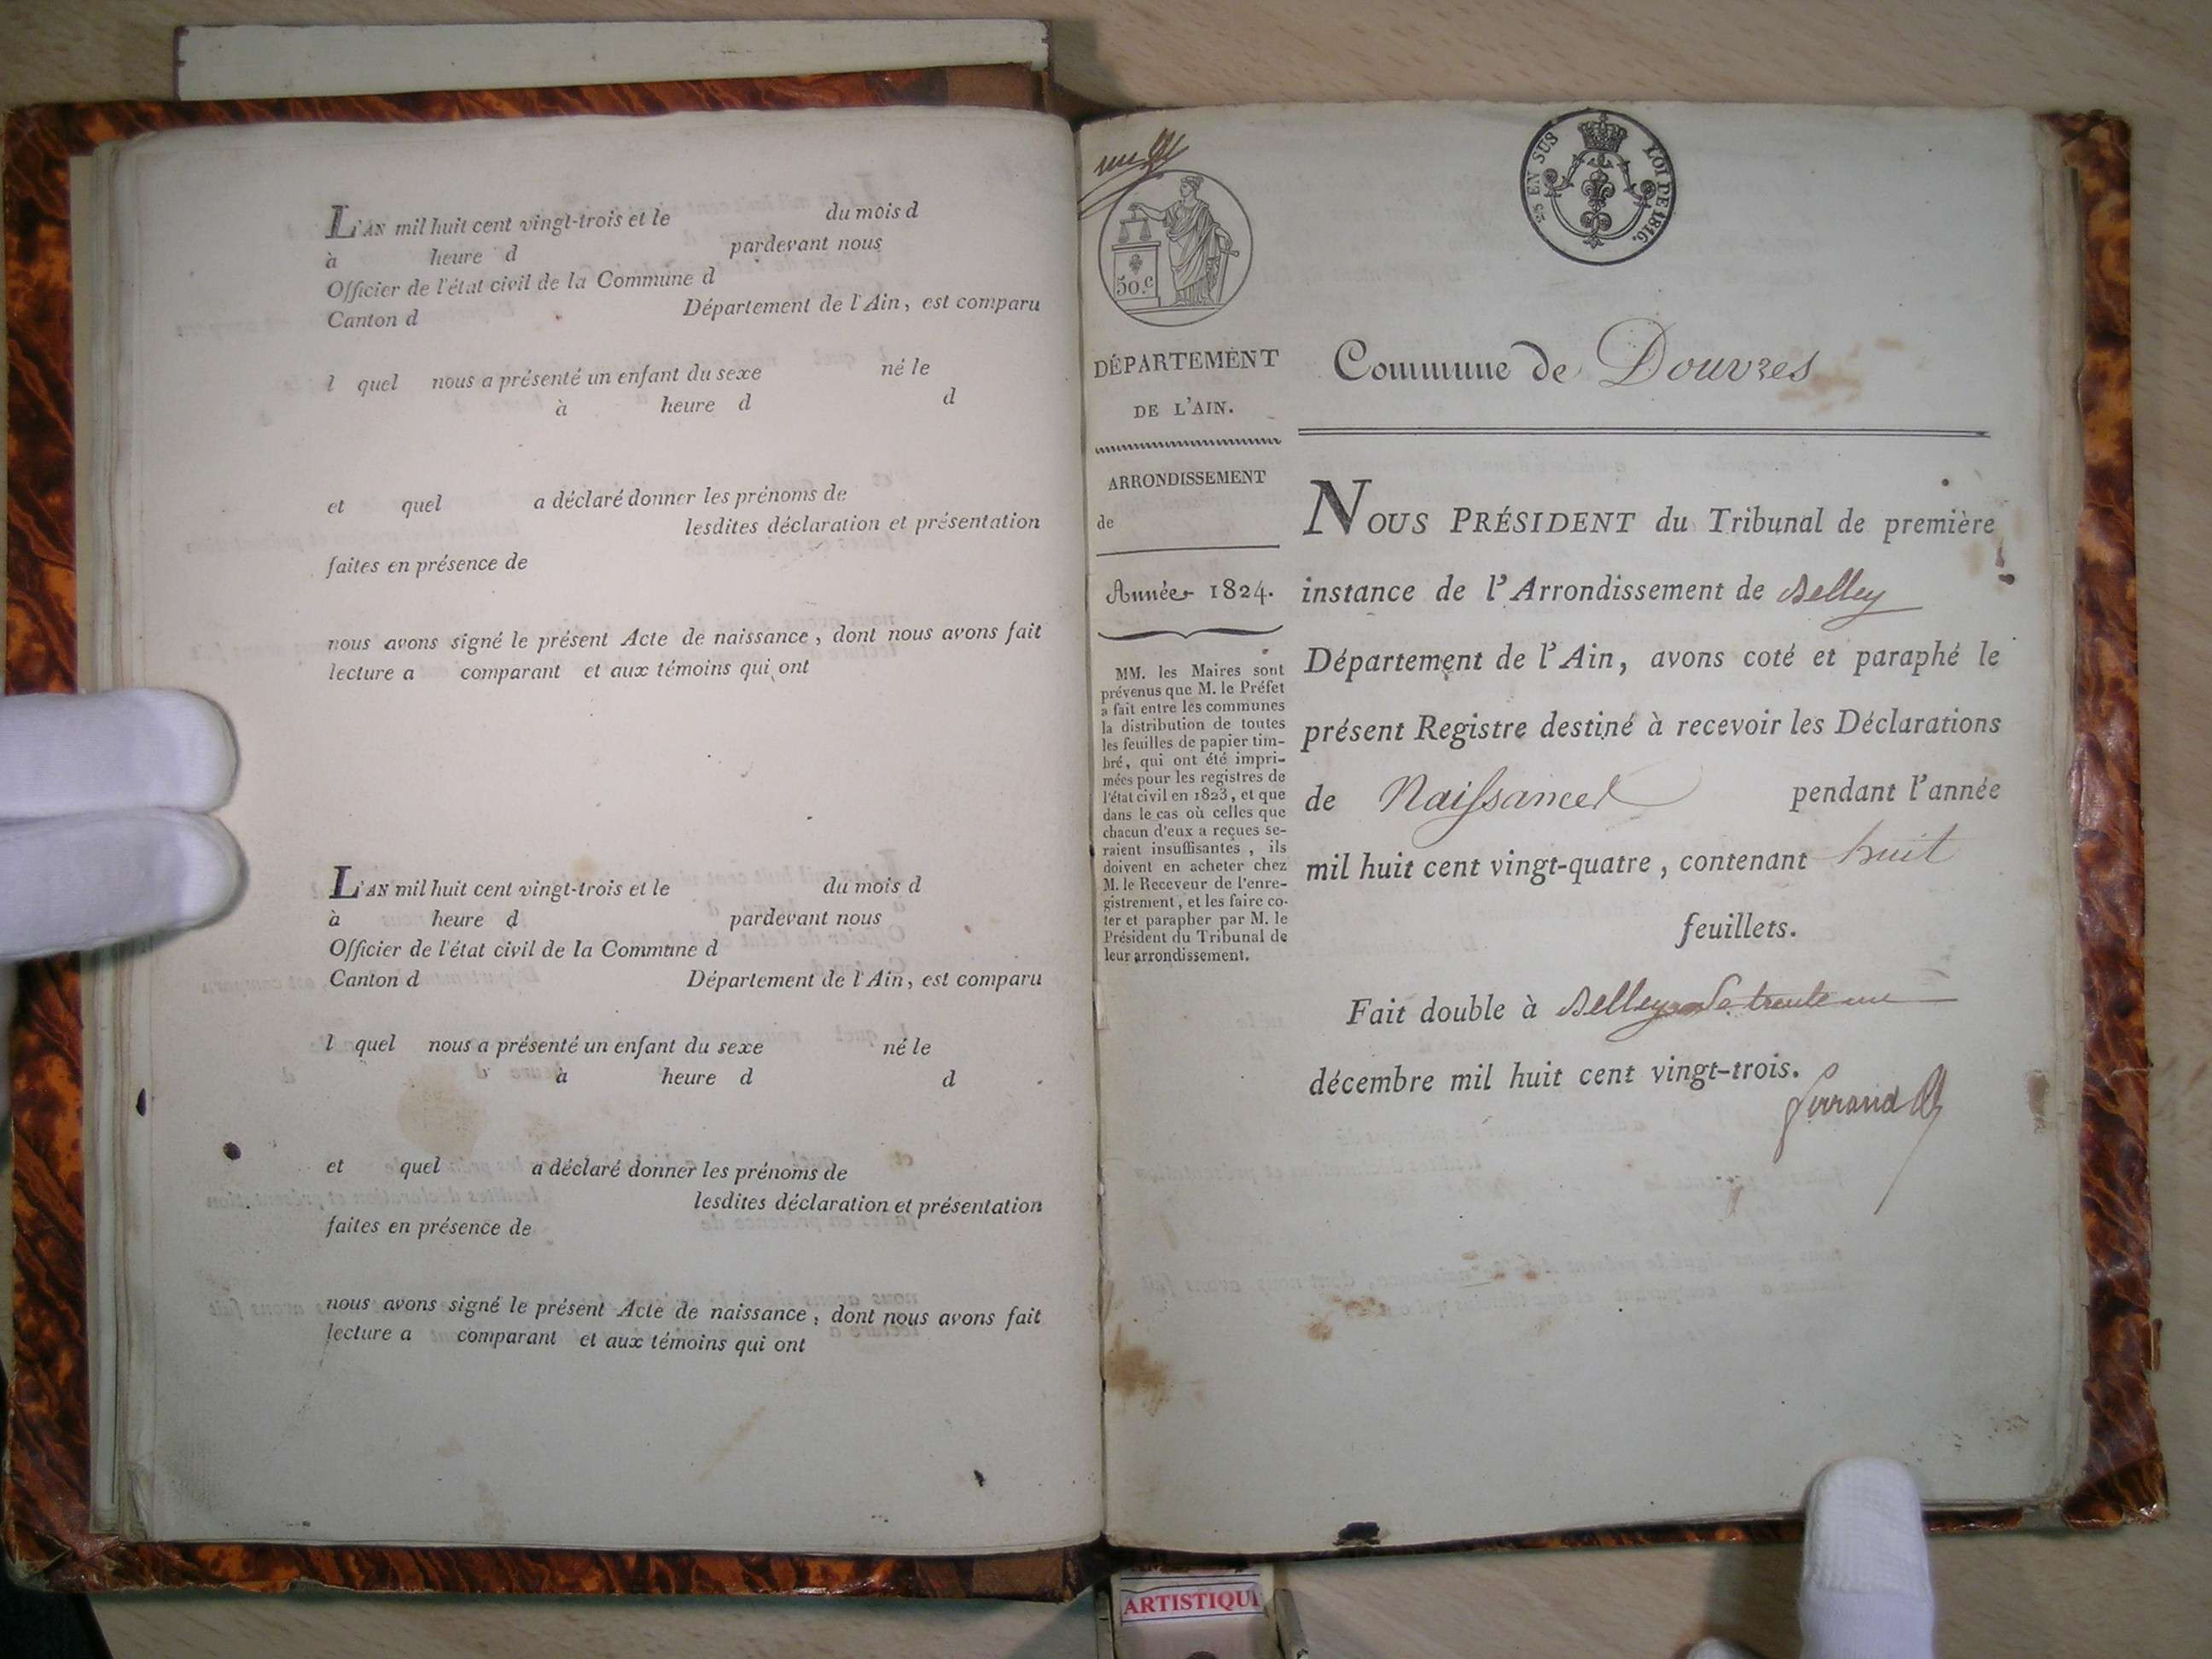 L'AN mil huit cent vingt-trois et le du mois d
à heure d pardevant nous
Officier de l'état civil de la Commune d
Canton d Département de l'Ain, est comparu
l quel nous a présenté un enfant du sexe né le
à heure d d
et quel a déclaré donner les prénoms de
lesdites déclaration et présentation
faites en présence de
nous avons signé le présent Acte de naissance, dont nous avons fait
lecture a comparant et aux témoins qui ont
L'AN mil huit cent vingt-trois et le du mois d
à heure d pardevant nous
Officier de l'état civil de la Commune d
Canton d Département de l'Ain, est comparu
l quel nous a présenté un enfant du sexe né le
à heure d d
et quel a déclaré donner les prénoms de
lesdites déclaration et présentation
faites en présence de
nous avons signé le présent Acte de naissance, dont nous avons fait
lecture a comparant et aux témoins qui ont
50.c
EN SUS LOI DE 1816.
DÉPARTEMENT
DE L'AIN.
ARRONDISSEMENT
de
Année 1824.
MM. les Maires sont
prévenus que M. le Préfet
a fait entre les communes
la distribution de toutes
les feuilles de papier tim-
bré, qui ont été impri-
mées pour les registres de
l'état civil en 1823, et que
dans le cas où celles que
chacun d'eux a reçues se-
raient insuffisantes, ils
doivent en acheter chez
M. le Receveur de l'enre-
gistrement, et les faire co-
ter et parapher par M. le
Président du Tribunal de
leur arrondissement.
Commune de Douvres
NOUS PRÉSIDENT du Tribunal de première
instance de l'Arrondissement de Belley
Département de l'Ain, avons coté et paraphé le
présent Registre destiné à recevoir les Déclarations
de Naissances pendant l'année
mil huit cent vingt-quatre, contenant huit
feuillets.
Fait double à Belley Le trente un
décembre mil huit cent vingt-trois.
Ferrand
ARTISTIQU